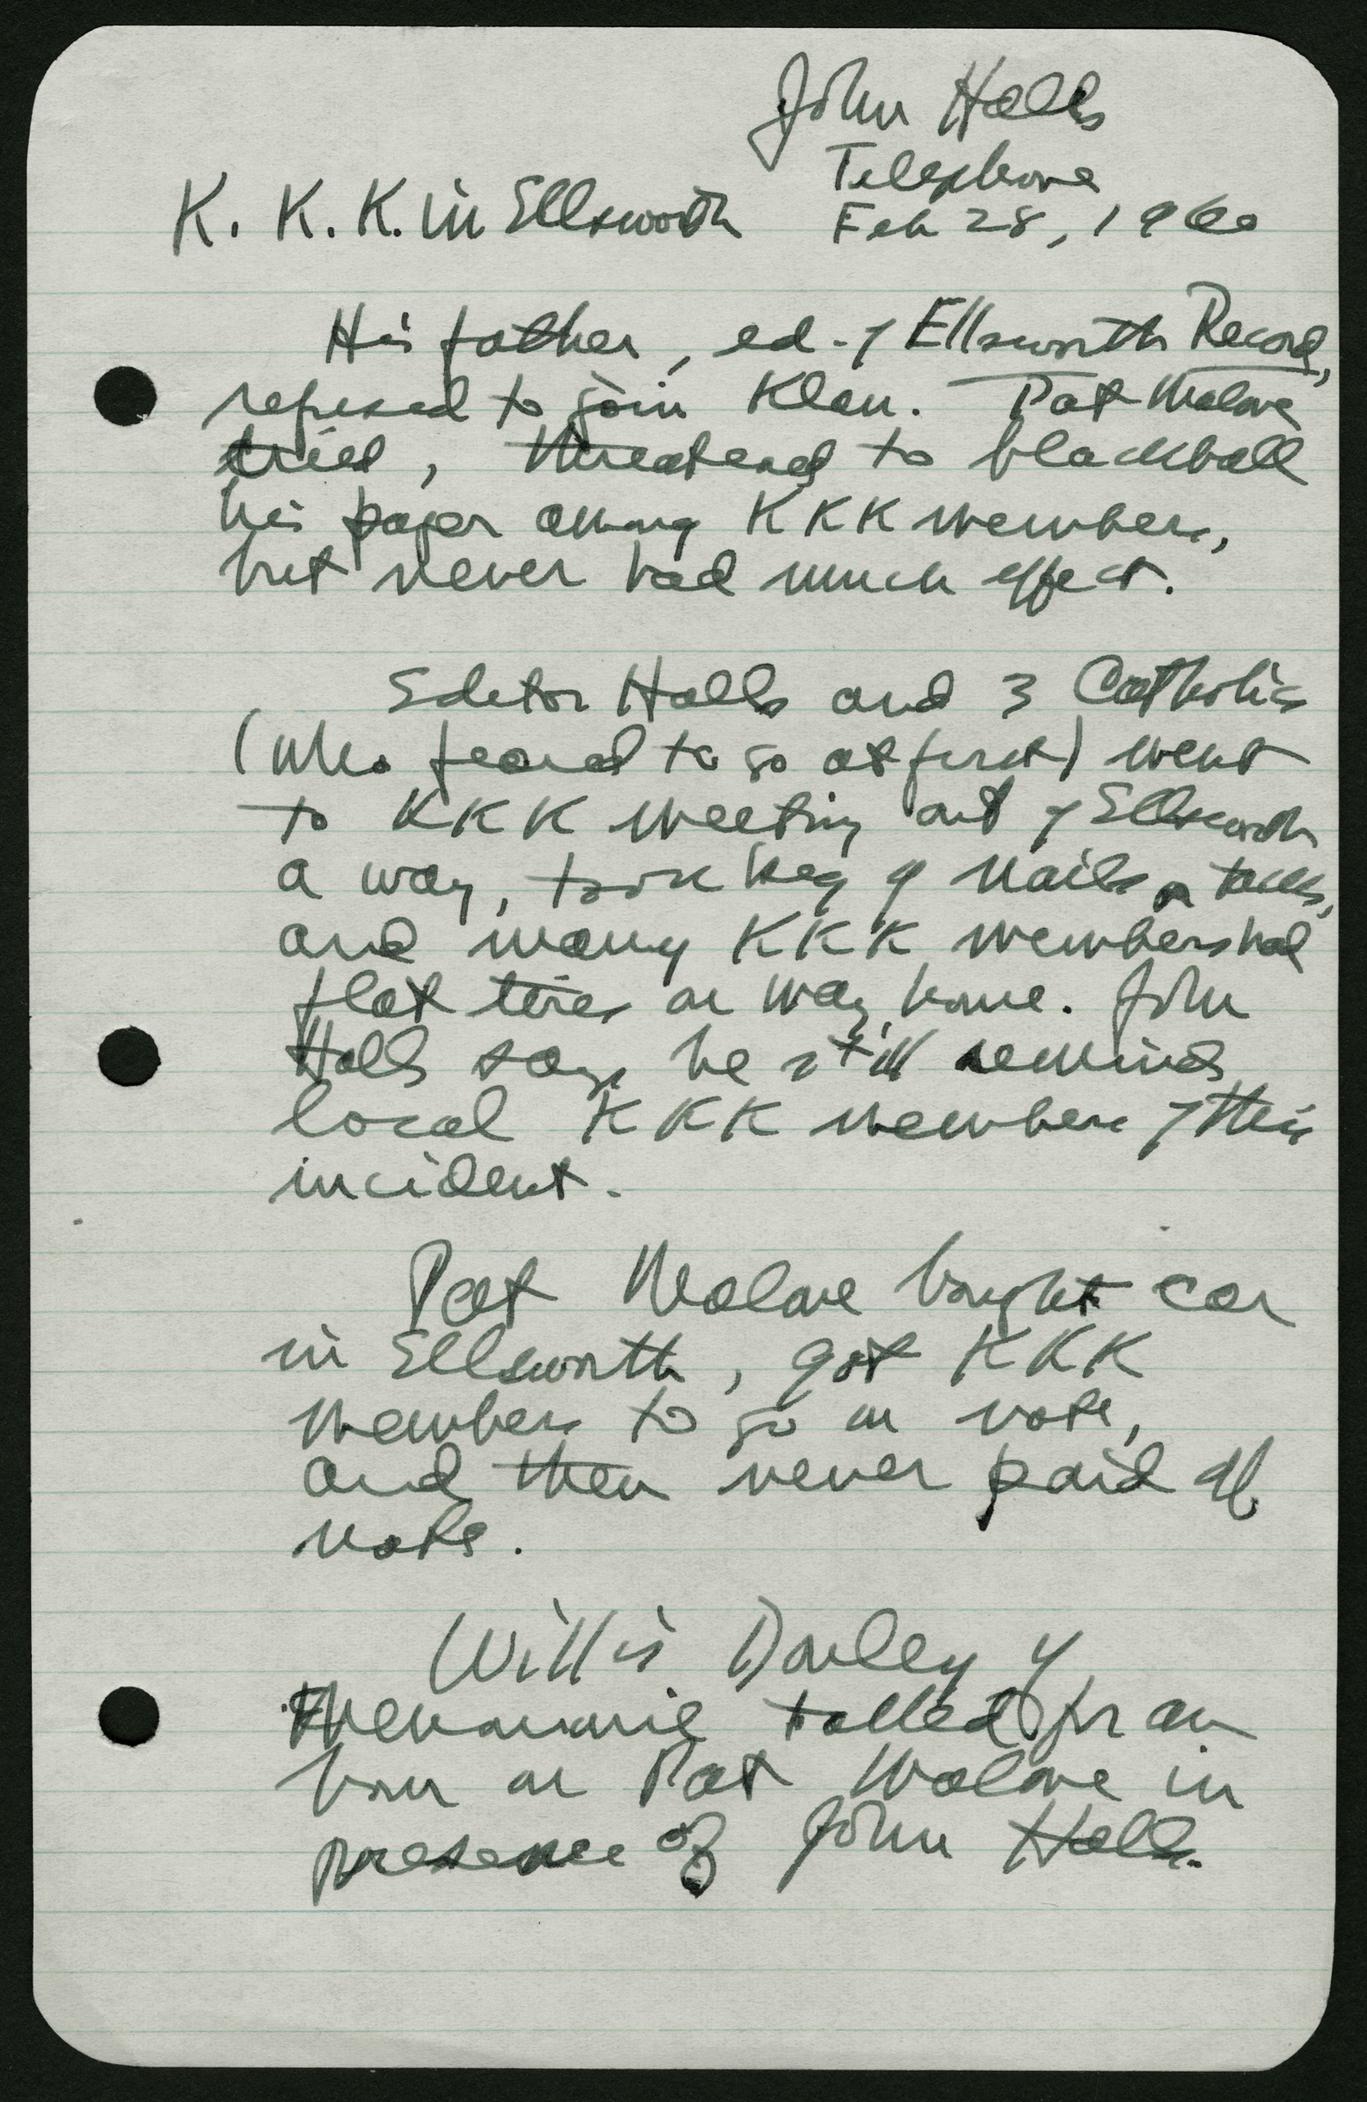 John Halls
Telephone
K. K. K. in Ellsworth Feb 28, 1960
His father, ed. of Ellsworth Record,
refused to join Klan. Pat Malone
tried, threatened to blackball
his paper among KKK members,
but never had much effect.
Editor Halls and 3 Catholics
(who feared to go at first) went
to KKK meeting out of Ellsworth
a way, took keg of nails or tacks,
and many KKK members had
flat tires on way home. John
Halls says he still reminds
local KKK members of this
incident.
Pat Malone bought car
in Ellsworth, got KKK
members to go on note,
and then never paid off
note.
Willis Donley of
Menomonie talked for an
hour on Pat Malone in
presence of John Halls.